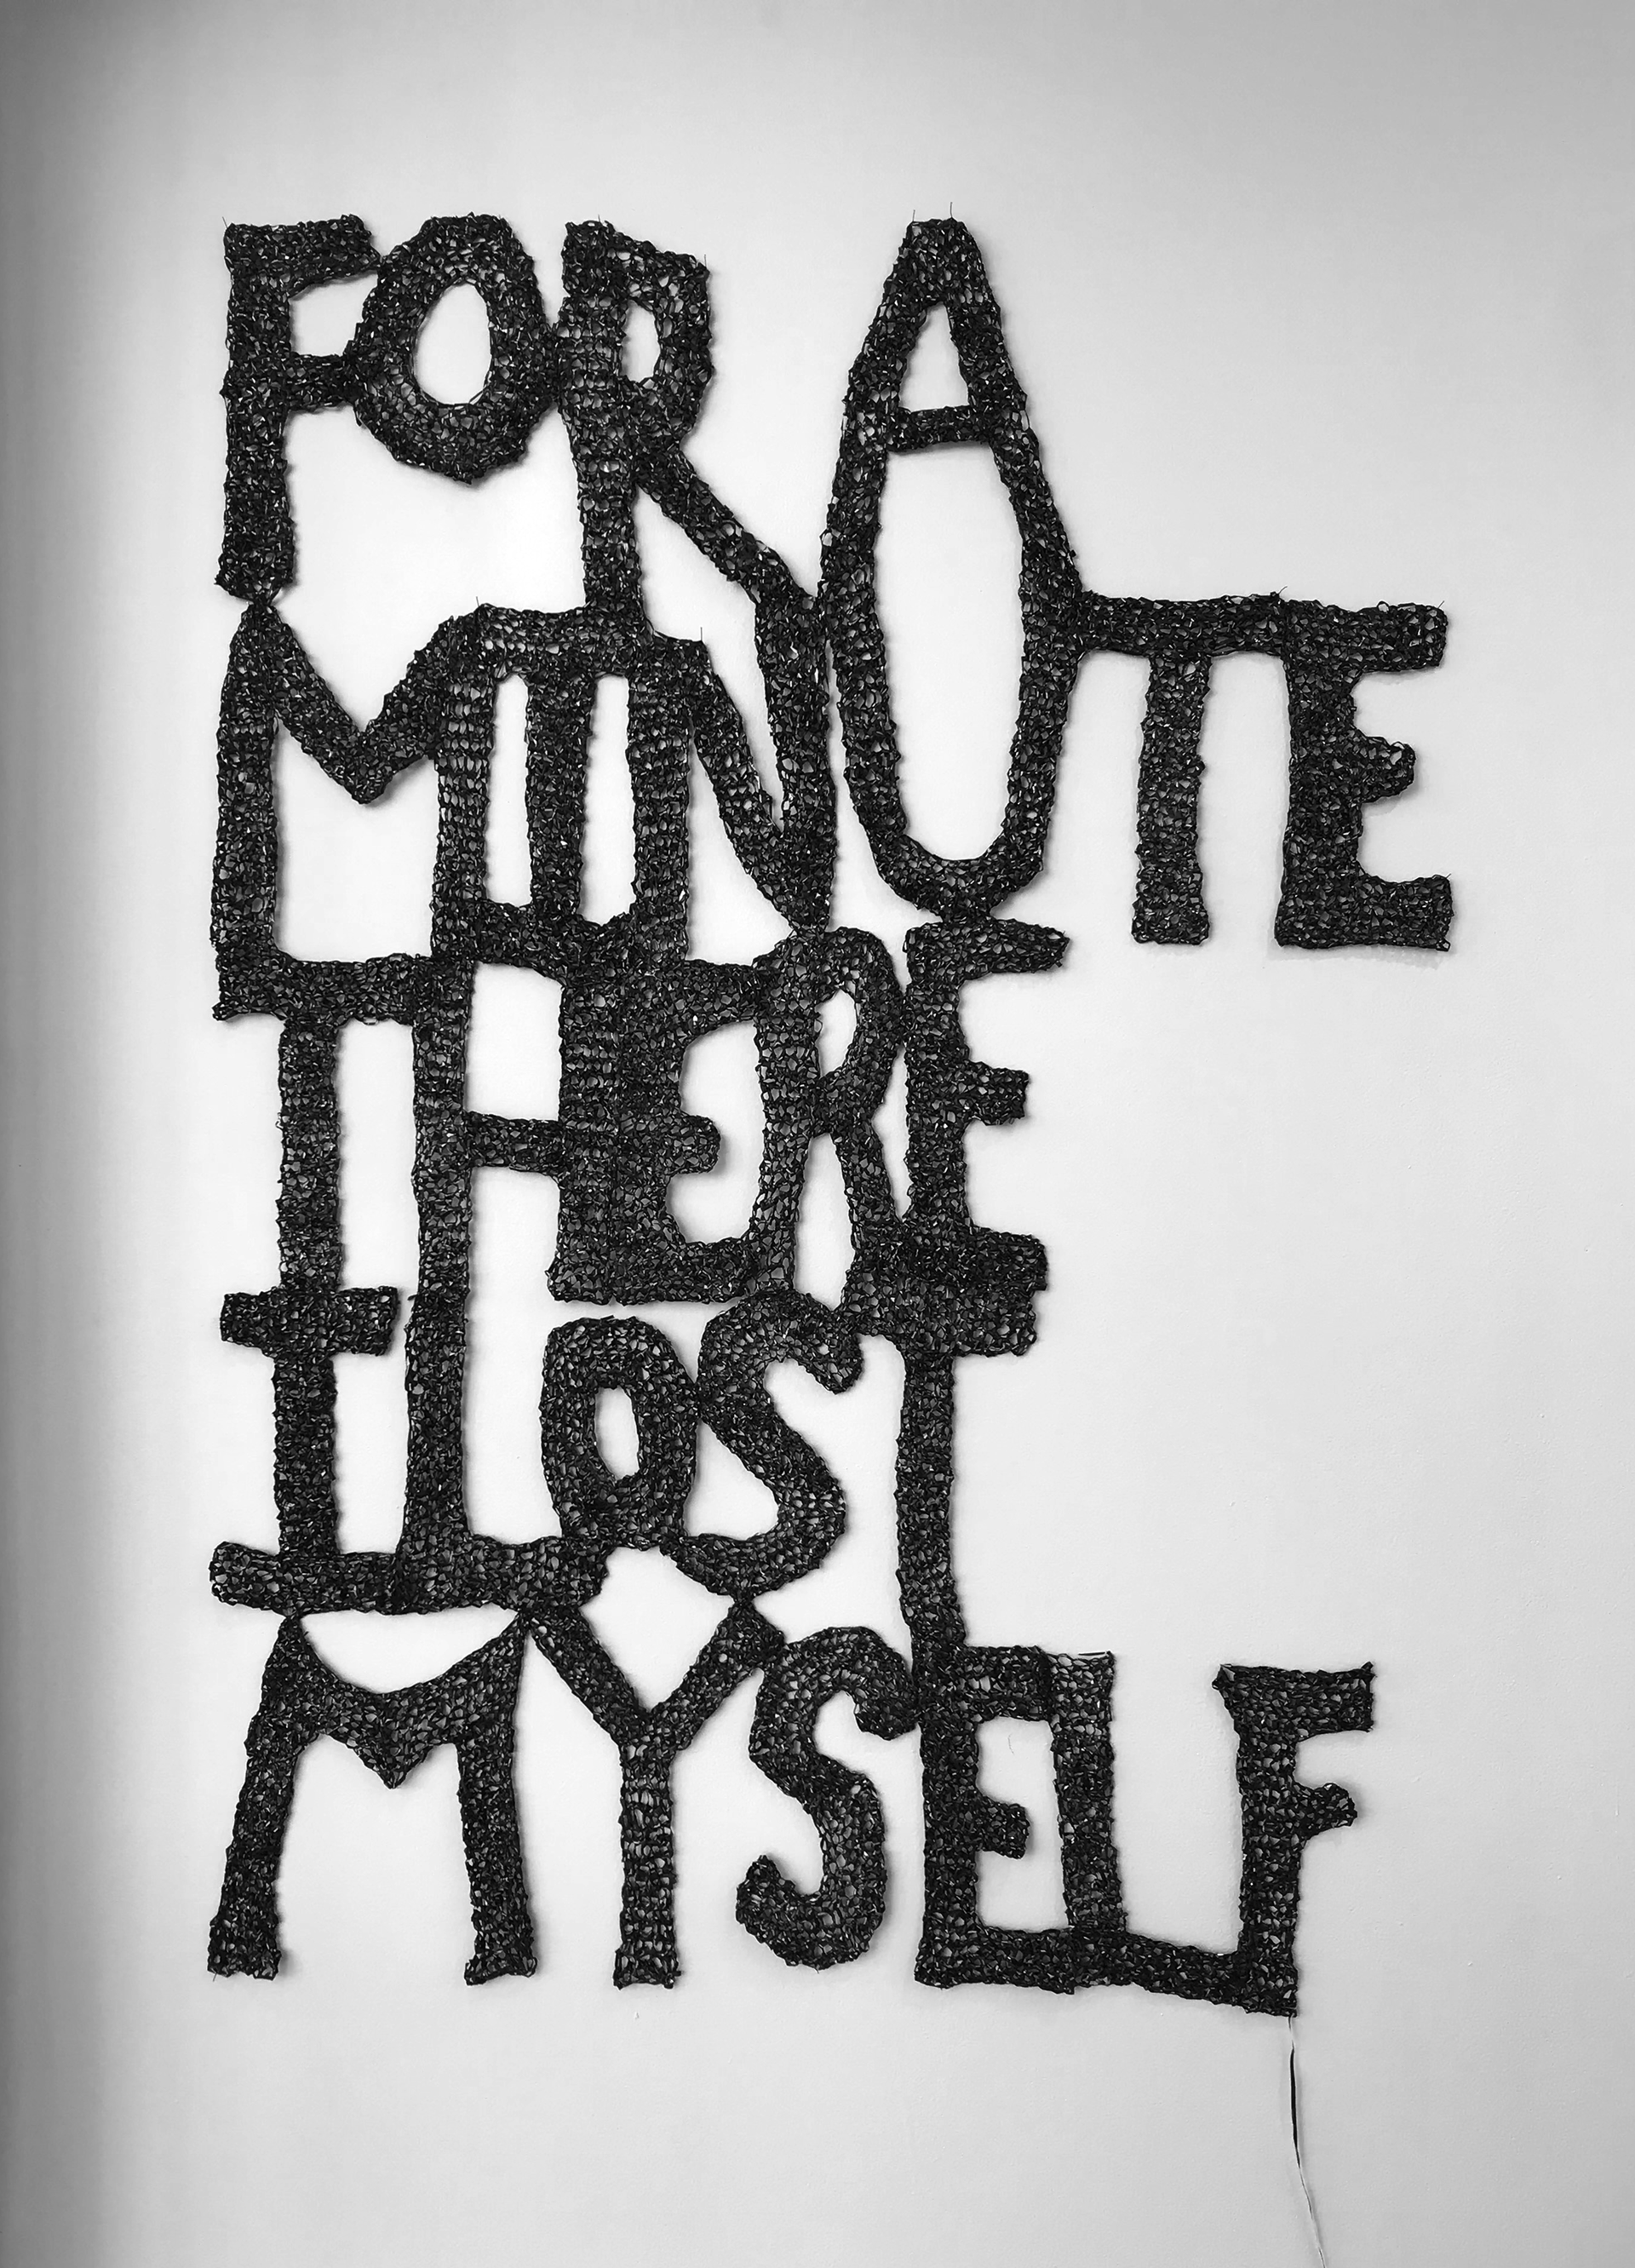 FOR A
MINUTE
THERE
I LOST
MYSELF